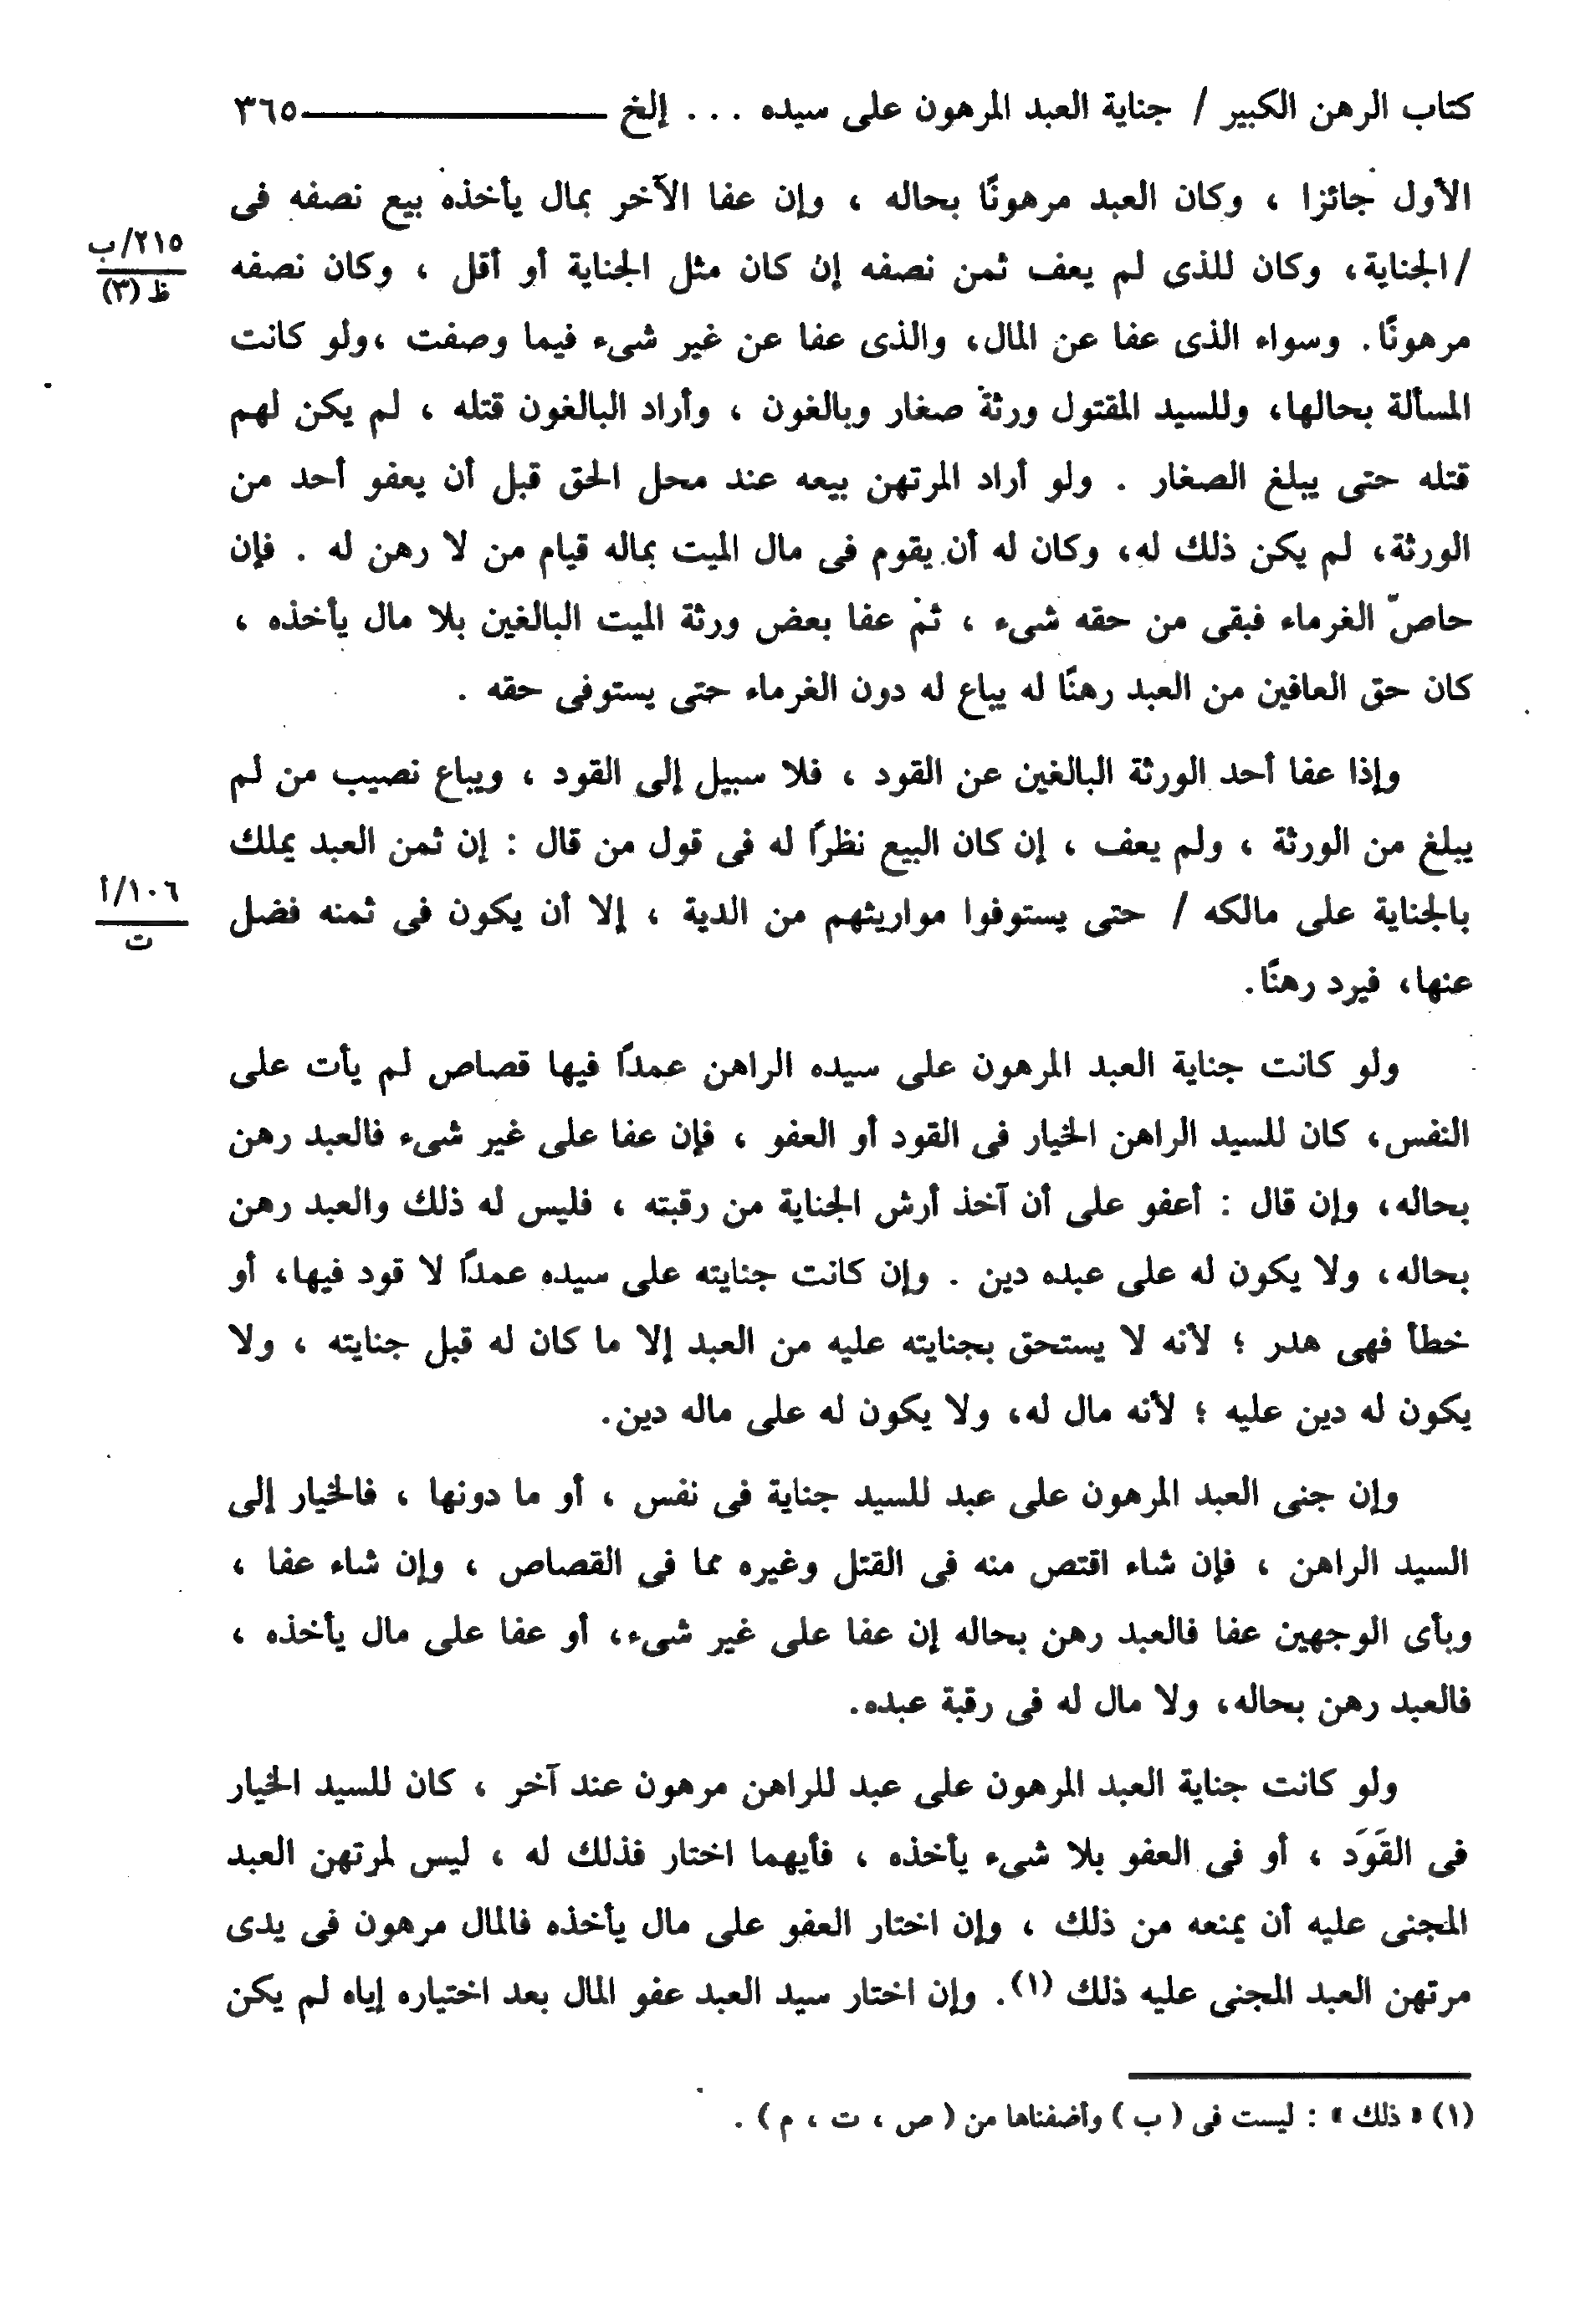 كتاب الرهن الكبير / جناية العبد المرهون على سيده . . . إلخ ــــــــــــ ٣٦٥
الأول جائزا ، وكان العبد مرهونًا بحاله ، وإن عفا الآخر بمال يأخذه بيع نصفه فى
٢١٥/ب
ظ (٣)
/الجناية، وكان للذى لم يعف ثمن نصفه إن كان مثل الجناية أو أقل ، وكان نصفه
مرهونًا. وسواء الذى عفا عن المال، والذى عفا عن غير شىء فيما وصفت ،ولو كانت
المسألة بحالها، وللسيد المقتول ورثة صغار وبالغون ، وأراد البالغون قتله ، لم يكن لهم
قتله حتى يبلغ الصغار . ولو أراد المرتهن بيعه عند محل الحق قبل أن يعفو أحد من
الورثة، لم يكن ذلك له، وكان له أن يقوم فى مال الميت بماله قيام من لا رهن له . فإن
حاصّ الغرماء فبقى من حقه شىء ، ثم عفا بعض ورثة الميت البالغين بلا مال يأخذه ،
كان حق العافين من العبد رهنًا له يباع له دون الغرماء حتى يستوفى حقه .
وإذا عفا أحد الورثة البالغين عن القود ، فلا سبيل إلى القود ، ويباع نصيب من لم
يبلغ من الورثة ، ولم يعف ، إن كان البيع نظرًا له فى قول من قال : إن ثمن العبد يملك
١٠٦/أ
ت
بالجناية على مالكه / حتى يستوفوا مواريثهم من الدية ، إلا أن يكون فى ثمنه فضل
عنها، فيرد رهنًا.
ولو كانت جناية العبد المرهون على سيده الراهن عمدًا فيها قصاص لم يأت على
النفس، كان للسيد الراهن الخيار فى القود أو العفو ، فإن عفا على غير شىء فالعبد رهن
بحاله، وإن قال : أعفو على أن آخذ أرش الجناية من رقبته ، فليس له ذلك والعبد رهن
بحاله، ولا يكون له على عبده دين . وإن كانت جنايته على سيده عمدًا لا قود فيها، أو
خطأ فهى هدر ؛ لأنه لا يستحق بجنايته عليه من العبد إلا ما كان له قبل جنايته ، ولا
يكون له دين عليه ؛ لأنه مال له، ولا يكون له على ماله دين.
وإن جنى العبد المرهون على عبد للسيد جناية فى نفس ، أو ما دونها ، فالخيار إلى
السيد الراهن ، فإن شاء اقتص منه فى القتل وغيره مما فى القصاص ، وإن شاء عفا ،
وبأى الوجهين عفا فالعبد رهن بحاله إن عفا على غير شىء، أو عفا على مال يأخذه ،
فالعبد رهن بحاله، ولا مال له فى رقبة عبده.
ولو كانت جناية العبد المرهون على عبد للراهن مرهون عند آخر ، كان للسيد الخيار
فى القَوَد ، أو فى العفو بلا شىء يأخذه ، فأيهما اختار فذلك له ، ليس لمرتهن العبد
المجنى عليه أن يمنعه من ذلك ، وإن اختار العفو على مال يأخذه فالمال مرهون فى يدى
مرتهن العبد المجنى عليه ذلك (١). وإن اختار سيد العبد عفو المال بعد اختياره إياه لم يكن
(١) « ذلك » : ليست فى ( ب ) وأضفناها من ( ص ، ت ، م ) .